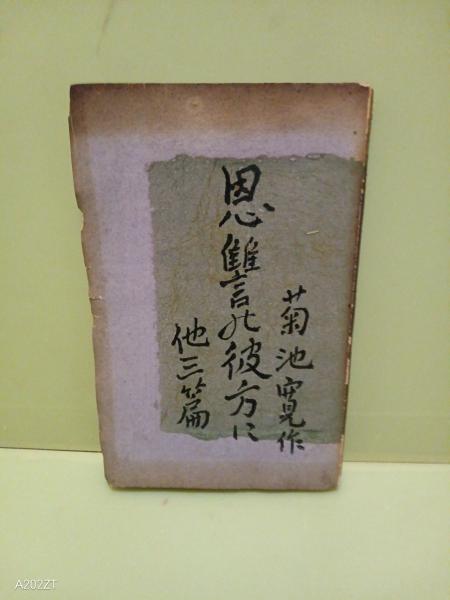 菊池寛作
恩讐の彼方に
他三篇
A202ZT